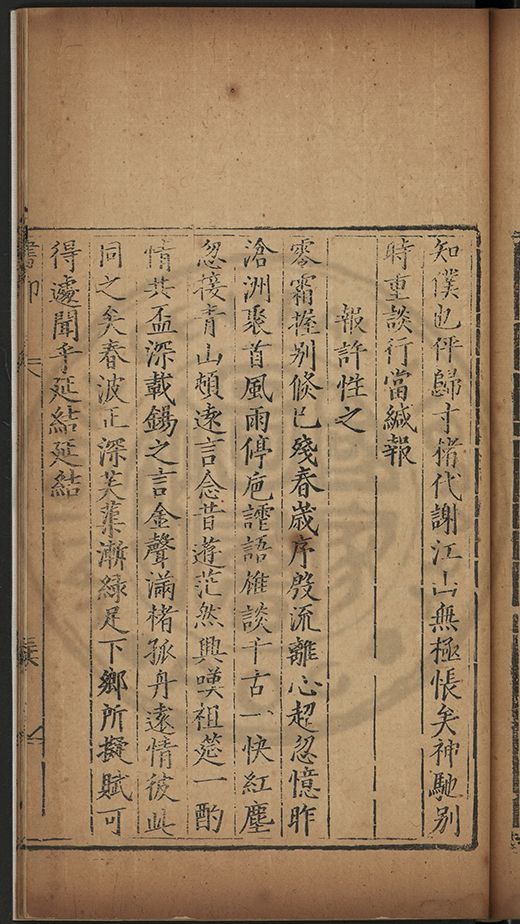 知僕也伻歸寸楮代謝江山無極悵矣神馳別
時重談行當緘報
報許性之
零霜握別倏已殘春歲序殷流離心超忽憶昨
滄洲聚首風雨停卮謔語雄談千古一快紅塵
忽接青山頓遠言念昔遊茫然興嘆祖筵一酌
情共盃深載錫之言金聲滿楮孤舟遠情彼此
同之矣春波正深芙蕖漸綠足下鄉所擬賦可
得遽聞乎延結延結